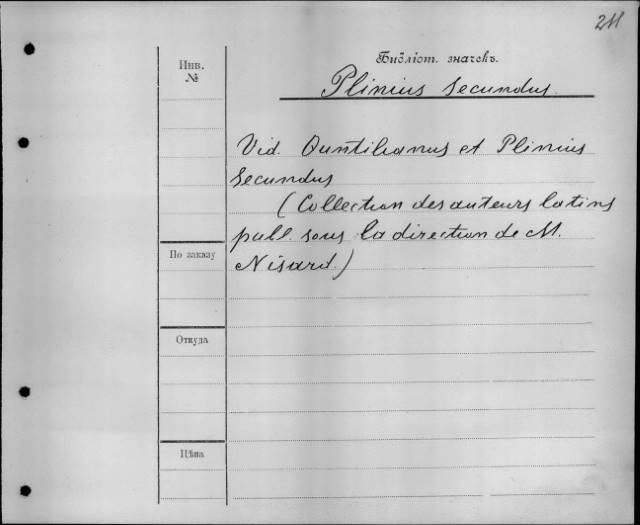 211
Библіот. значекъ.
Plinius Secundus.
Инв.
№
Vid. Quntilianus et Plinius
Secundus
(Collection des auteurs latins
publ. sous la direction de M.
Nisard.)
По заказу
Откуда
Цѣна